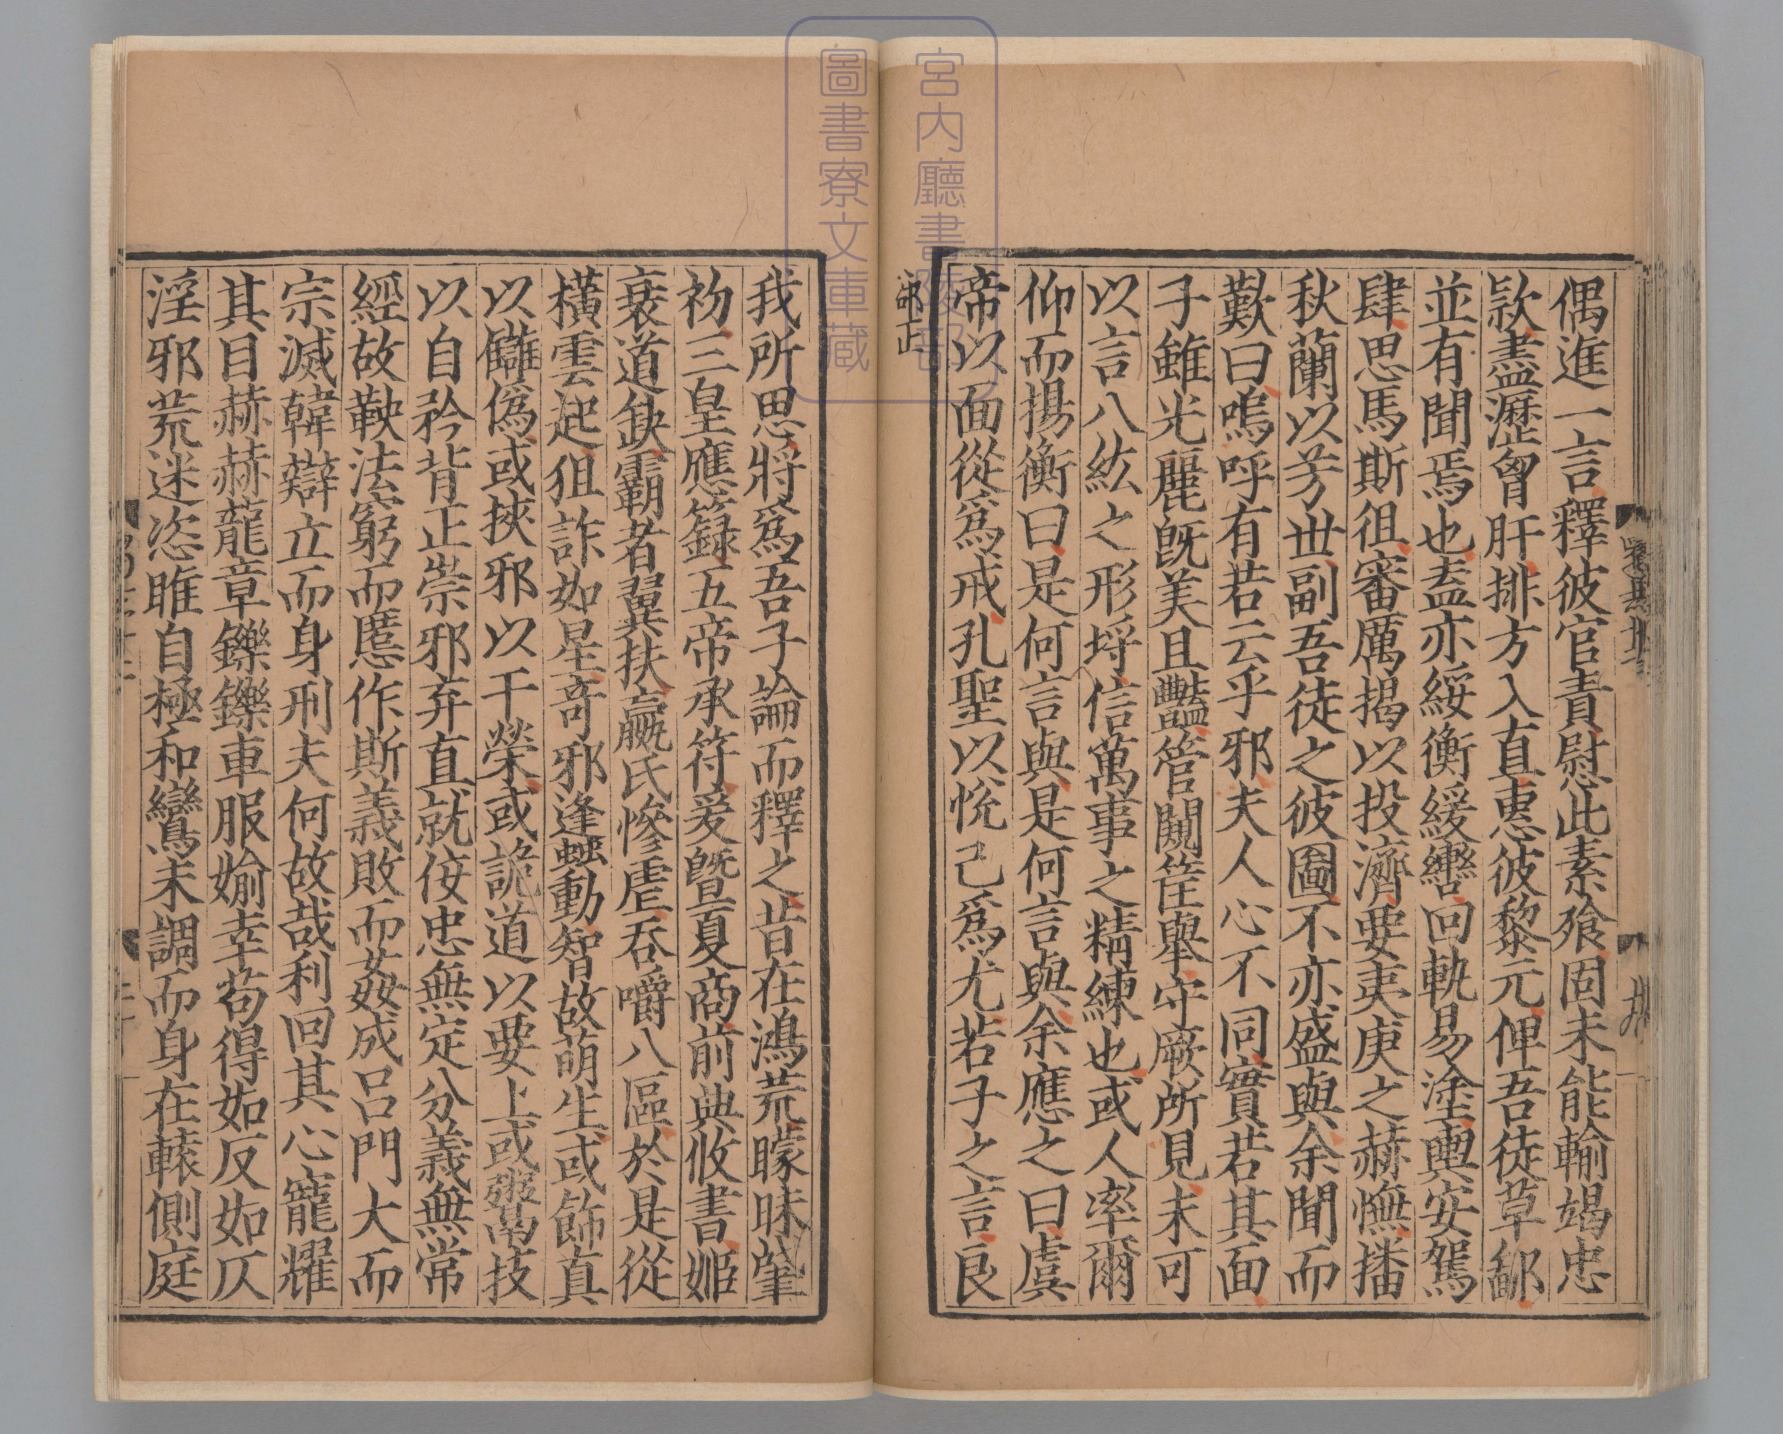 偶進一言釋彼官責慰此素飱固未能輸竭忠
款盡瀝胷肝排方入直惠彼黎元俾吾徒草鄙
並有聞焉也盍亦綏衡緩轡回軌易塗輿安駕
肆思馬斯徂審厲揭以投濟要夷庚之赫憮播
秋蘭以芳世副吾徒之彼圖不亦盛與余聞而
歎曰嗚呼有若云乎邪夫人心不同實若其面
子雖光麗旣美且豔管闚筐舉守厥所見未可
以言八紘之形埒信萬事之精練也或人率爾
仰而揚衡曰是何言與是何言與余應之曰虞
帝以面從爲戒孔聖以悅己爲尤若子之言良
郤正
我所思將爲吾子論而釋之昔在鴻荒矇昧肈
初三皇應籙五帝承符爰曁夏商前典攸書姬
衰道缺霸者翼扶嬴氏慘虐吞嚼八區於是從
橫雲起狙詐如星竒邪逢蝱動智故萌生或飾真
以讎僞或挾邪以干榮或詭道以要上或鬻技
以自矜背正崇邪弃直就佞忠無定分義無常
經故鞅法窮而慝作斯義敗而姦成呂門大而
宗滅韓辯立而身刑夫何故哉利回其心寵耀
其目赫赫蘢章鑠鑠車服婾幸苟得如反如仄
淫邪荒迷恣睢自極和鸞未調而身在轅側庭
宮内廳書陵部
圖書寮文庫藏